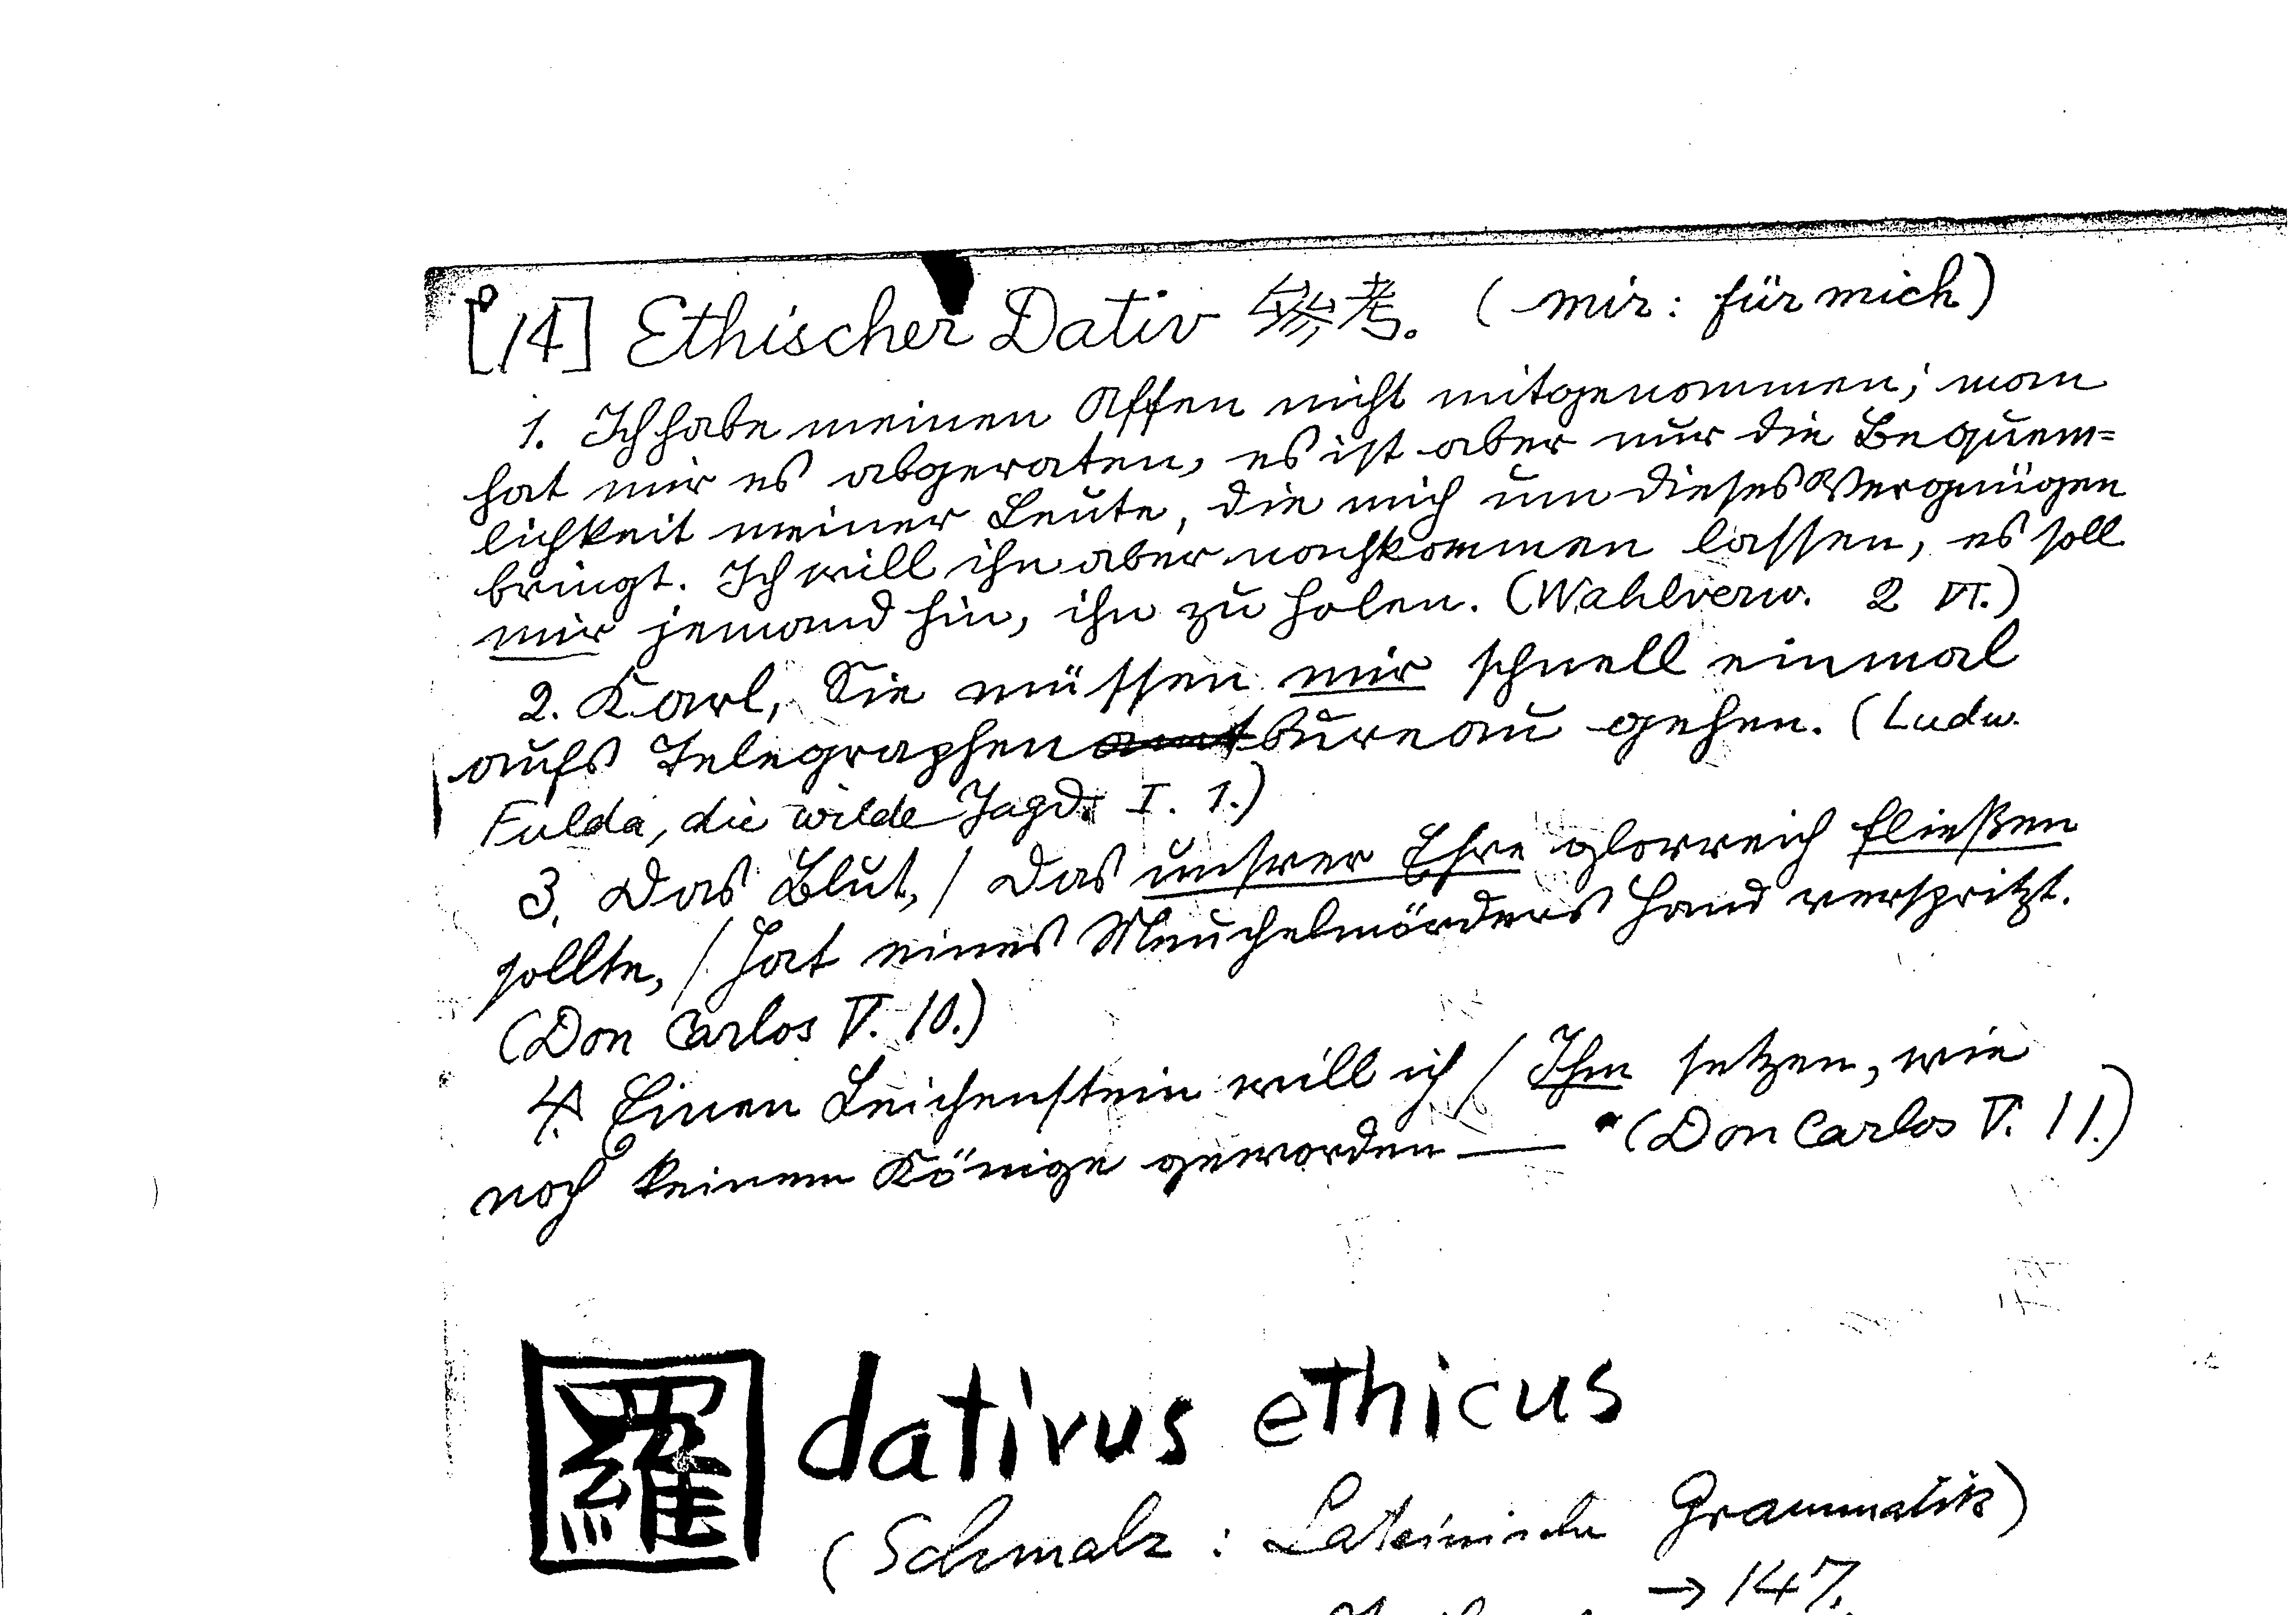 [14] Ethischer Dativ 参考. (mir: für mich)
1. Ich habe meinen Affen nicht mitgenommen; man
hat mir es abgeraten, es ist aber nur die Bequem=
lichkeit meiner Leute, die mich um dieses Vergnügen
bringt. Ich will ihn aber nachkommen lassen, es soll
mir jemand hin, ihn zu holen. (Wahlverw. 2 VI.)
2. Karl, Sie müssen mir schnell einmal
aufs Telegraphenbureau gehen. (Ludw.
Fulda, die wilde Jagd. I. 1.)
3. Das Blut, / Das unsrer Ehre glorreich fließen
sollte, / Hat eines Meuchelmörders Hand verspritzt.
(Don Carlos V. 10.)
4. Einen Leichenstein will ich / Ihm setzen, wie
noch keinem Könige geworden — (Don Carlos V. 11.)
羅 dativus ethicus
(Schmalz : Lateinische Grammatik)
→ 147.